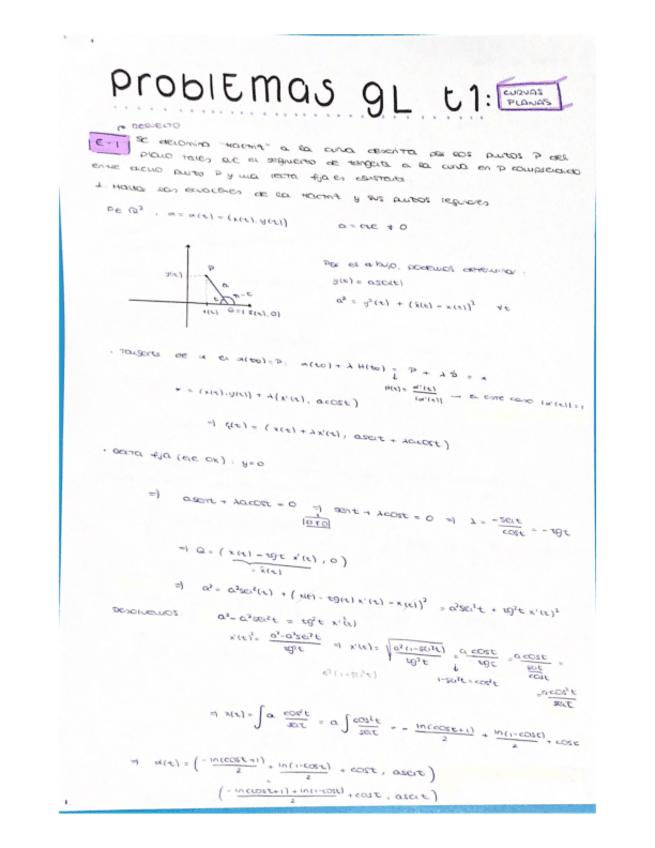 PROBLEMAS GL t1: CURVAS PLANAS
E-1 Se denomina "tractriz" a la curva descrita por los puntos P del
plano tales que el segmento de tangente a la curva en P comprendido
entre dicho punto P y una recta fija es constante
1. Halla las ecuaciones de la tractriz y sus puntos regulares
, α = α(t) = (x(t), y(t))
a = cte ≠ 0
Por el dibujo, podemos determinar:
y(t) = a sen(t)
a² = y²(t) + (x̃(t) - x(t))² ∀t
y(t) P
a
t π-t
x(t) Q = (x̃(t), 0)
= (x(t), y(t)) + λ(x'(t), a cos t)
(x(t) + λx'(t), a sen t + λa cos t)
y=0
⇒ a sen t + λa cos t = 0 ⇒ sen t + λ cos t = 0 ⇒ λ = -sen t / cos t = - tg t
a≠0
⇒ Q = (x(t) - tg t x'(t), 0)
= x̃(t)
⇒ a² = a² sen²(t) + (x(t) - tg(t) x'(t) - x(t))² = a² sen² t + tg² t x'(t)²
a² - a² sen² t = tg² t x'(t)
x'(t)² = a² - a² sen² t / tg² t ⇒ x'(t) = √(a²(1 - sen² t) / tg² t) = a cos t / tg t = a cos t / (sen t / cos t) =
a²(1 - sen² t)
1 - sen² t = cos² t
= a cos² t / sen t
⇒ x(t) = ∫ a cos² t / sen t = a ∫ cos² t / sen t = - ln(cos t + 1) / 2 + ln(1 - cos t) / 2 + cos t
⇒ α(t) = (- ln(cos t + 1) / 2 + ln(1 - cos t) / 2 + cos t, a sen t)
(- ln(cos t + 1) + ln(1 - cos t) / 2 + cos t, a sen t)